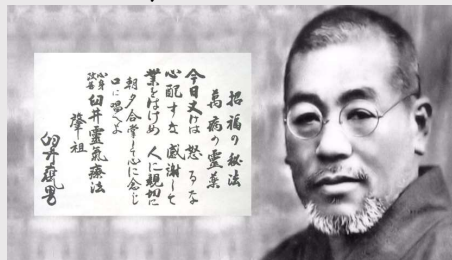 招福の秘法
萬病の霊薬
今日丈けは 怒るな
心配すな 感謝して
業をはげめ 人に親切に
朝夕合掌して心に念じ
口に唱へよ
心身改善 臼井靈氣療法
肇祖
臼井甕男